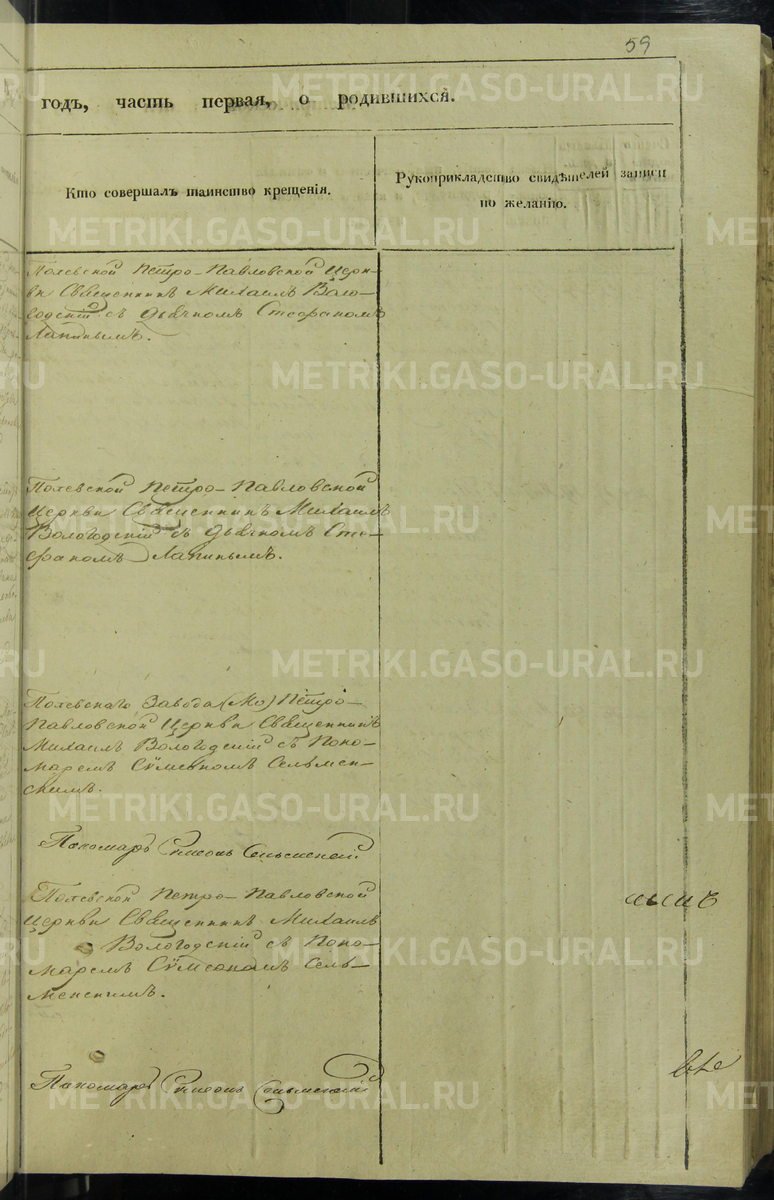 59
годъ, часть первая, о родившихся.
Кто совершалъ таинство крещенія.
Рукоприкладство свидѣтелей записи
по желанію.
Полевской Петро-Павловской Церк-
ви Священникъ Михаилъ Воло-
годскій съ дьячкомъ Стефаномъ
Лапинымъ.
Полевской Петро-Павловской
Церкви Священникъ Михаилъ
Вологодскій съ дьячкомъ Сте-
фаномъ Лапинымъ.
Полевскаго Завода Петро-
Павловской Церкви Священникъ
Михаилъ Вологодскій съ Поно-
маремъ Сѵмеономъ Сельмен-
скимъ.
Пономарь Симеонъ Сельменской
Полевской Петро-Павловской
Церкви Священникъ Михаилъ
Вологодскій съ Поно-
маремъ Сѵмеономъ Сель-
менскимъ.
Пономарь Симеонъ Сельменскій
METRIKI.GASO-URAL.RU